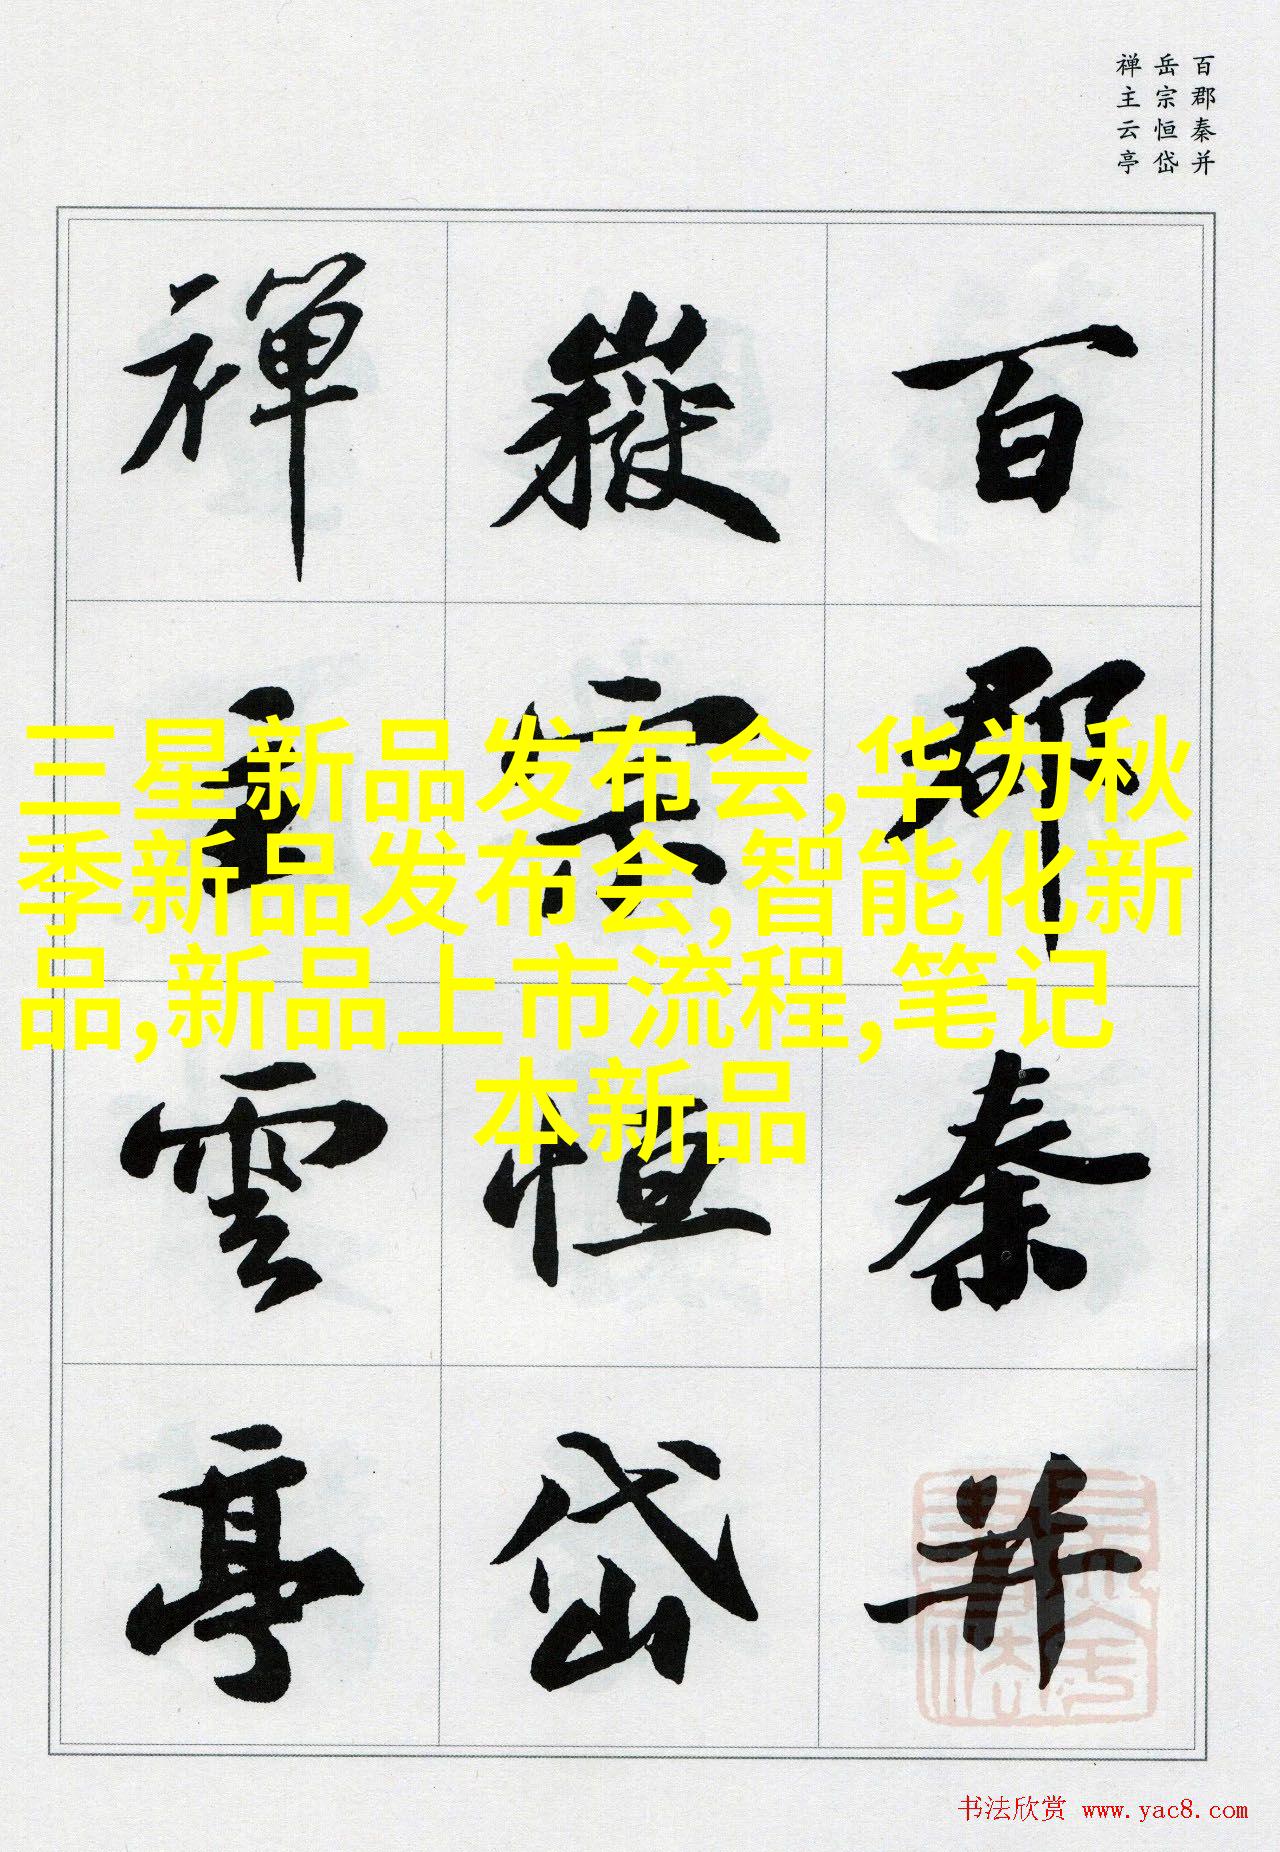 百郡秦并
岳宗恒岱
禅主云亭
百郡秦并
嶽宗恒岱
禅主雲亭
三星新品发布会,华为秋
季新品发布会,智能化新
品,新品上市流程,笔记
本新品
书法欣赏 www.yac8.com